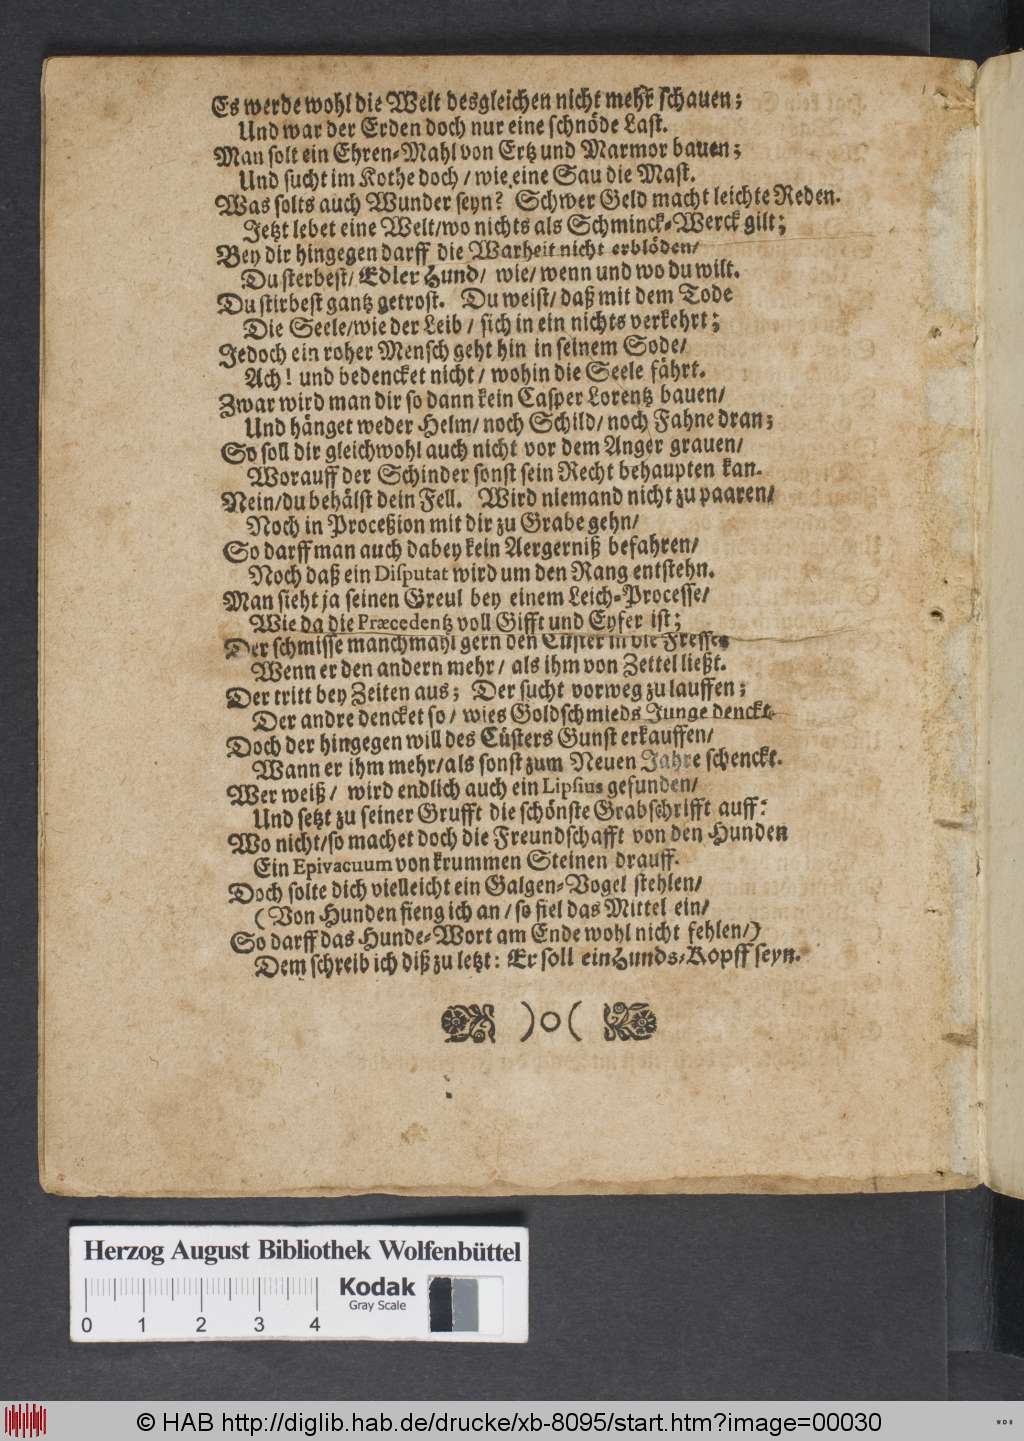 Es werde wohl die Welt desgleichen nicht mehr schauen;
Und war der Erden doch nur eine schnöde Last.
Man solt ein Ehren-Mahl von Ertz und Marmor bauen;
Und sucht im Kothe doch / wie eine Sau die Mast.
Was solts auch Wunder seyn? Schwer Geld macht leichte Reden.
Jetzt lebet eine Welt/wo nichts als Schminck-Werck gilt;
Bey dir hingegen darff die Warheit nicht erblöden/
Du sterbest/ Edler Hund/ wie/ wenn und wo du wilt.
Du stirbest gantz getrost. Du weist/ daß mit dem Tode
Die Seele/wie der Leib / sich in ein nichts verkehrt;
Jedoch ein roher Mensch geht hin in seinem Sode/
Ach! und bedencket nicht/ wohin die Seele fährt.
Zwar wird man dir so dann kein Casper Lorentz bauen/
Und hänget weder Helm/ noch Schild/ noch Fahne dran;
So soll dir gleichwohl auch nicht vor dem Anger grauen/
Worauff der Schinder sonst sein Recht behaupten kan.
Nein/du behälst dein Fell. Wird niemand nicht zu paaren/
Noch in Proceßion mit dir zu Grabe gehn/
So darff man auch dabey kein Aergerniß befahren/
Noch daß ein Disputat wird um den Rang entstehn.
Man sieht ja seinen Greul bey einem Leich-Processe/
Wie da die Præcedentz voll Gifft und Eyfer ist;
Der schmisse manchmahl gern den Cüster in die Fresse
Wenn er den andern mehr / als ihm von Zettel ließt.
Der tritt bey Zeiten aus; Der sucht vorweg zu lauffen;
Der andre dencket so / wies Goldschmieds Junge denckt.
Doch der hingegen will des Cüsters Gunst erkauffen/
Wann er ihm mehr/als sonst zum Neuen Jahre schenckt.
Wer weiß / wird endlich auch ein Lipsius gefunden/
Und setzt zu seiner Grufft die schönste Grabschrifft auff:
Wo nicht/so machet doch die Freundschafft von den Hunden
Ein Epivacuum von krummen Steinen drauff.
Doch solte dich vielleicht ein Galgen-Vogel stehlen/
(Von Hunden fieng ich an / so fiel das Mittel ein/
So darff das Hunde-Wort am Ende wohl nicht fehlen/)
Dem schreib ich diß zu letzt: Er soll ein Hunds-Kopff seyn.
)o(
Herzog August Bibliothek Wolfenbüttel
Kodak
Gray Scale
0 1 2 3 4
© HAB http://diglib.hab.de/drucke/xb-8095/start.htm?image=00030